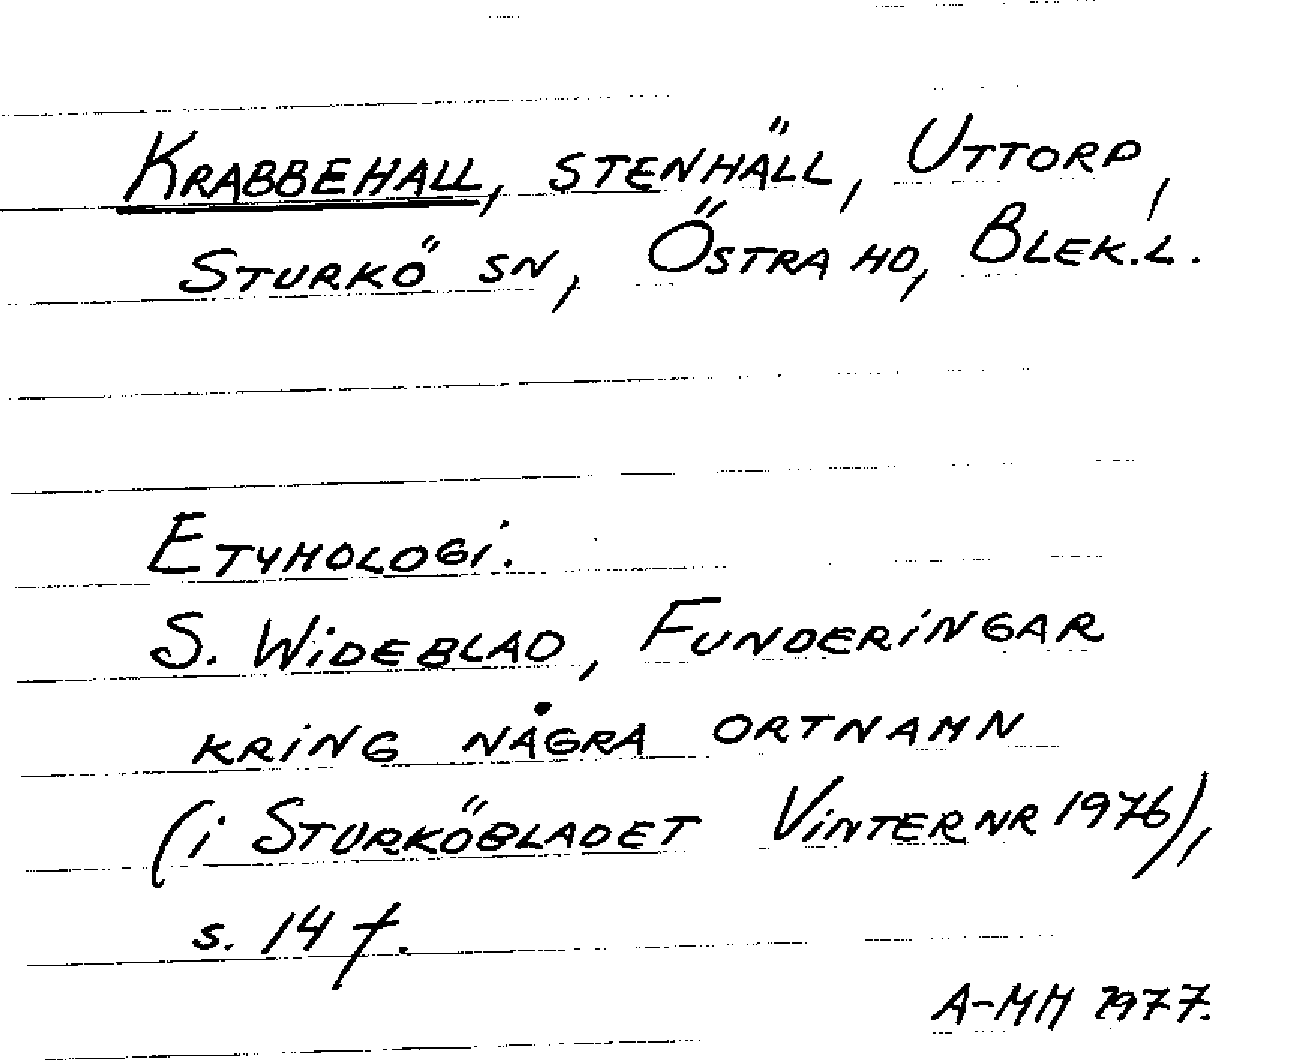 KRABBEHALL, STENHÄLL, UTTORP,
STURKÖ SN, ÖSTRA HD, BLEK.L.
ETYMOLOGI.
S. WIDEBLAD, FUNDERINGAR
KRING NÅGRA ORTNAMN
(i STURKÖBLADET VINTERNR 1976),
s. 14 f.
A-MM 1977.